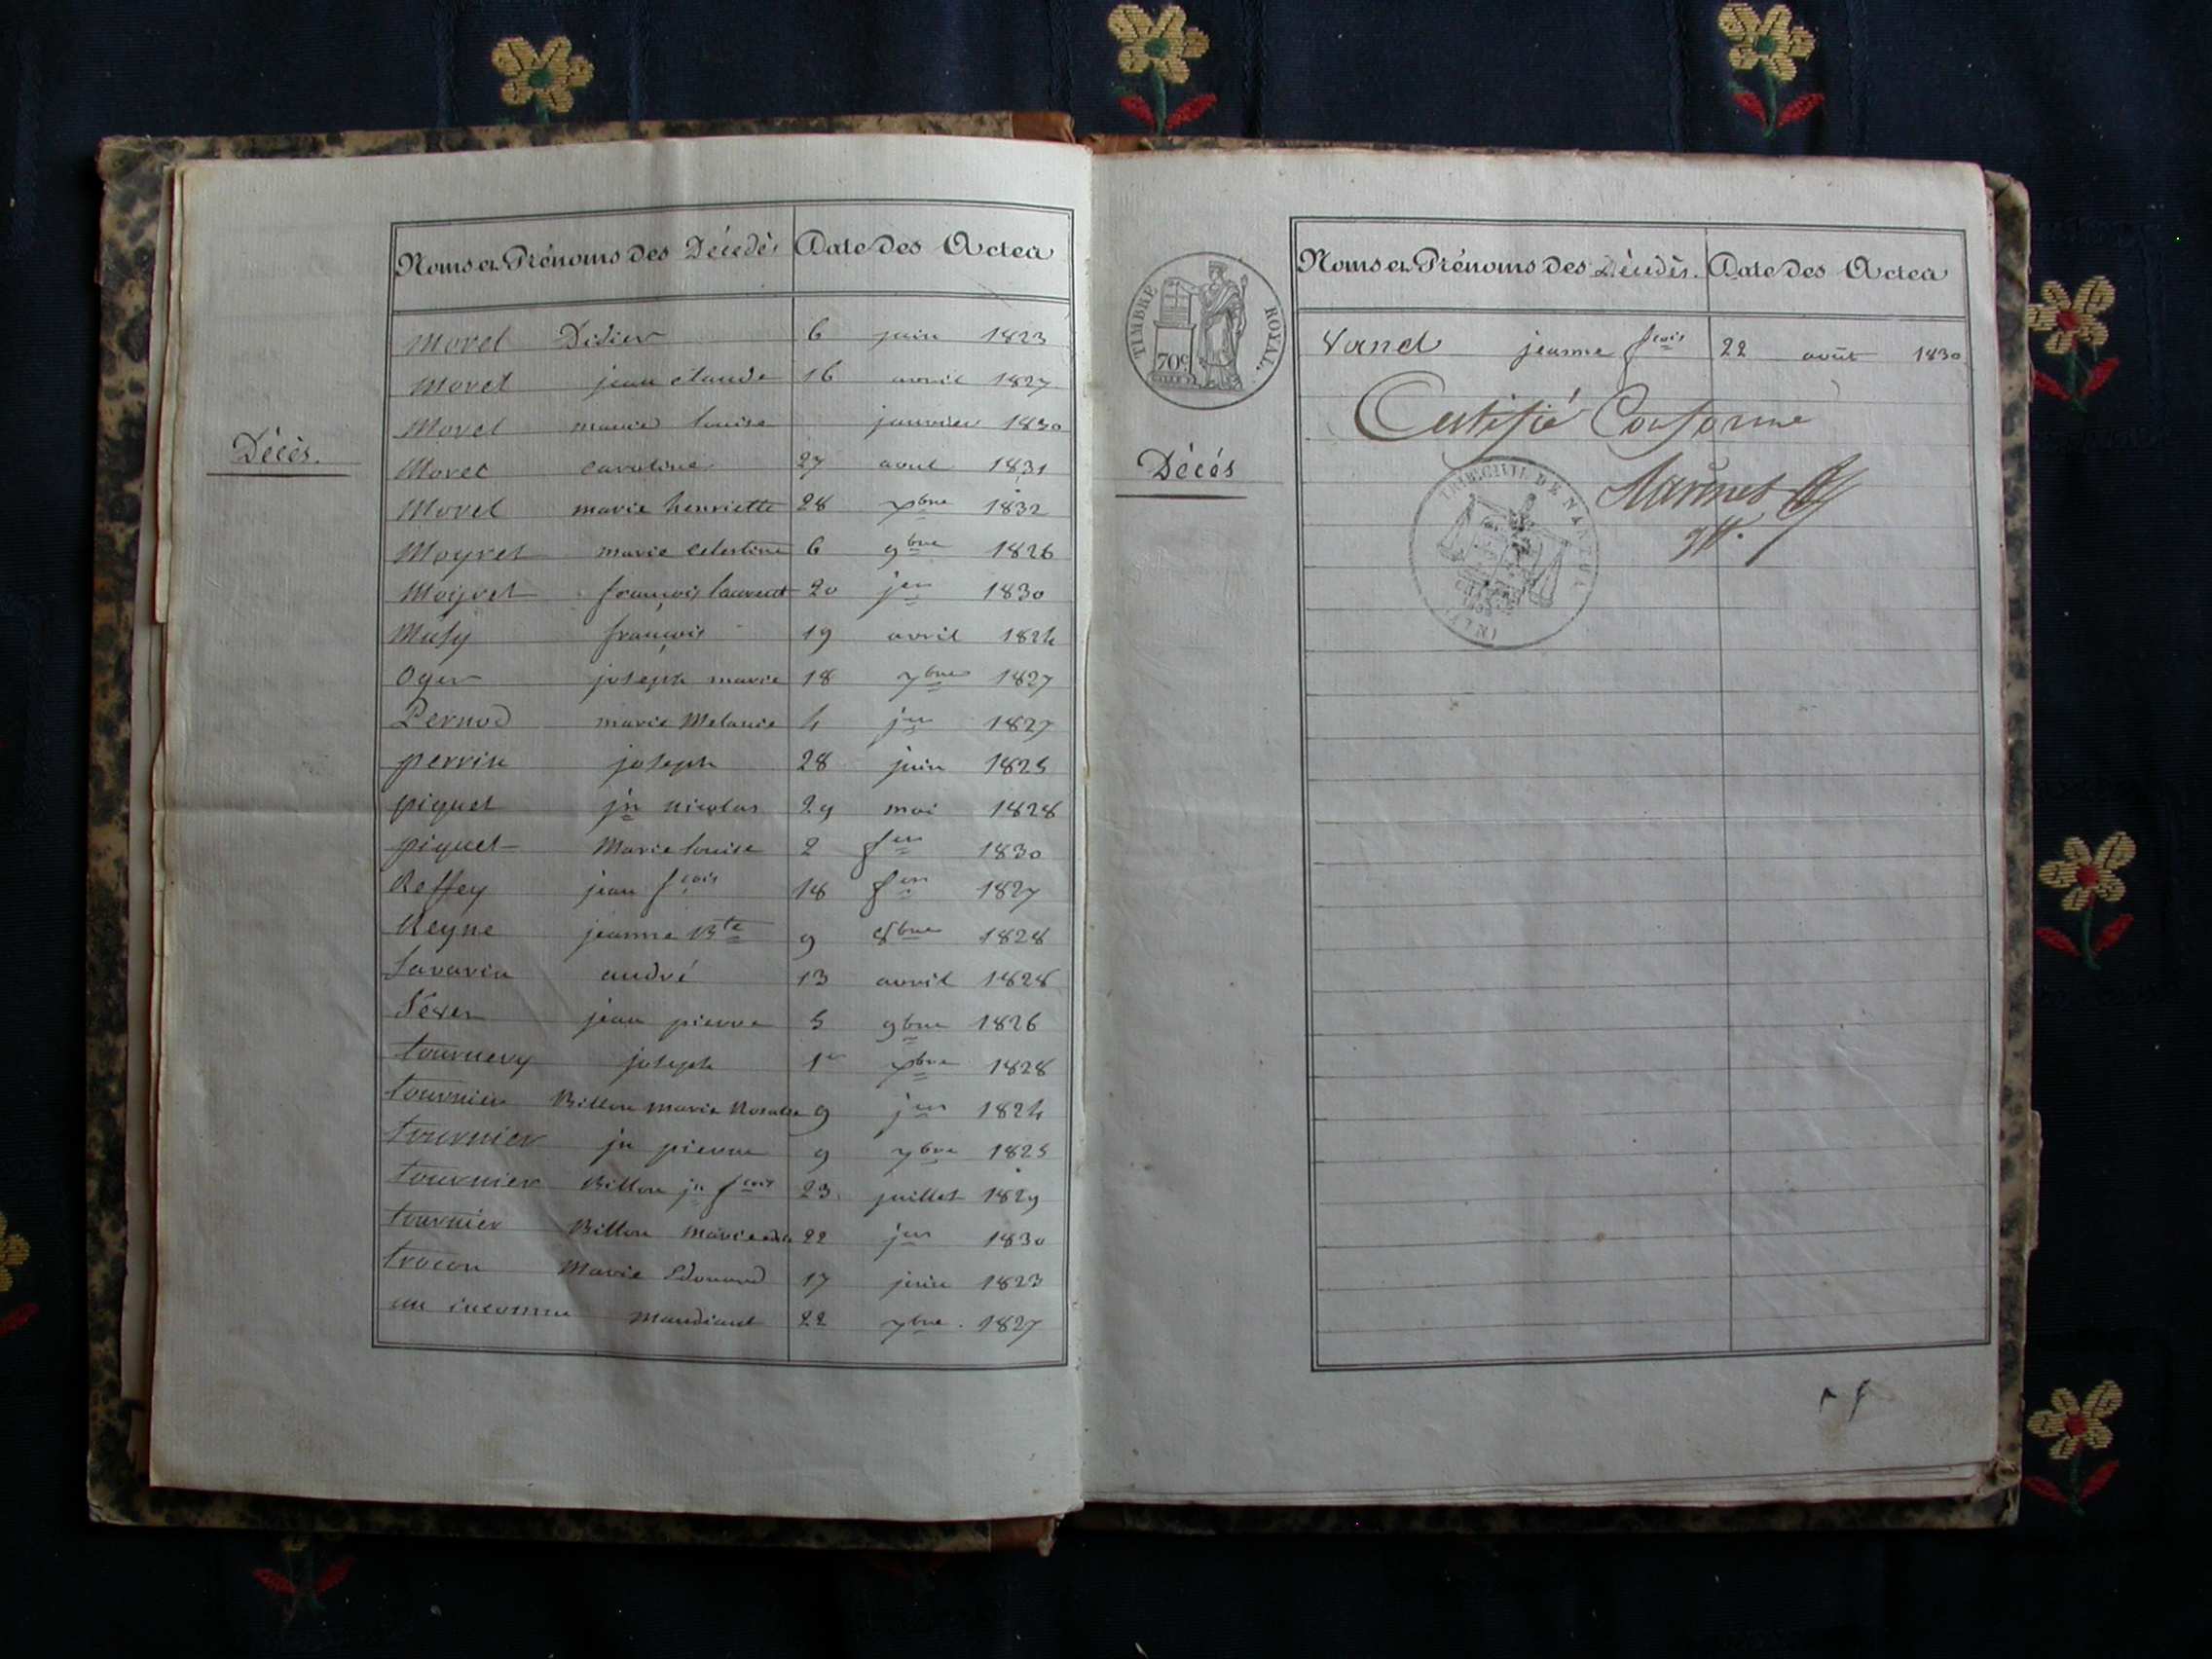 Décès.
Noms et Prénoms des Décédés Date des Actes
Morel Didier 6 juin 1823
Morel jean claude 16 avril 1827
Morel marie louise janvier 1830
Morel caroline 27 aout 1831
Morel marie henriette 28 xbre 1832
Moyret marie Celestine 6 9bre 1826
Moyret françois laurent 20 jer 1830
Musy françois 19 avril 1824
Oger joseph marie 18 7bre 1827
Pernod marie Melanie 4 jer 1827
perrin joseph 28 juin 1825
piquet jn nicolas 29 mai 1828
piquet Marie louise 2 fer 1830
Reffey jean fcois 18 fer 1827
Reyne jeanne Bte 9 8bre 1828
Savarin andré 13 avril 1828
jean pierre 5 9bre 1826
tournery joseph 1er xbre 1828
tournier Billon marie Rosalie 9 jer 1824
tournier jn pierre 9 7bre 1825
tournier Billon jn fcois 23 juillet 1829
tournier Billon Marie 22 jer 1830
trocon Marie Edouard 17 juin 1823
un inconnu Mandiant 22 7bre. 1827
TIMBRE ROYAL
70c
Décés
Noms et Prénoms des Décédés. Date des Actes
Vanel jeanne fcois 22 août 1830
Certifié Conforme
TRIB. CIVIL DE NANTUA